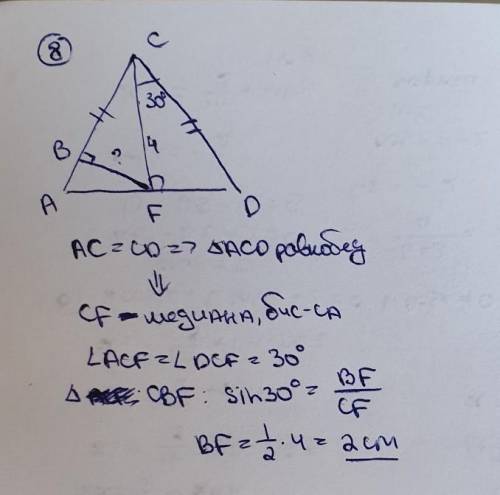 8
C
30°
4
B
?
A
F
D
AC = CD => △ACD равнобед
⇓
CF - медиана, бис-са
∠ACF = ∠DCF = 30°
△ CBF: sin30° = BF/CF
BF = 1/2 · 4 = 2 см